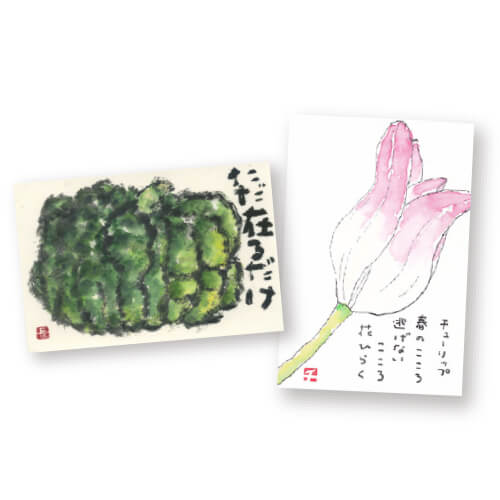 ただ在るだけ
チューリップ
春のこころ
逃げない
こころ
花ひらく